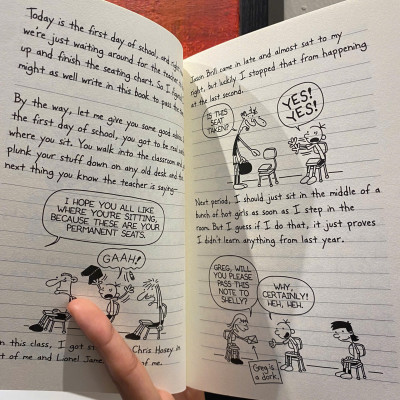 Today is the first day of school, and right
we're just waiting around for the teacher
up and finish the seating chart. So I
might as well write in this book to pass the
By the way, let me give you some good
the first day of school, you got to be real
where you sit. You walk into the classroom and
plunk your stuff down on any old desk and the
next thing you know the teacher is saying—
I HOPE YOU ALL LIKE
WHERE YOU'RE SITTING,
BECAUSE THESE ARE YOUR
PERMANENT SEATS.
GAAH!
n this class, I got Chris Hosey in
t of me and Lionel of me.
Jason Brill came in late and almost sat to my
right, but luckily I stopped that from happening
at the last second.
IS THIS
SEAT
TAKEN?
YES!
YES!
Next period, I should just sit in the middle of a
bunch of hot girls as soon as I step in the
room. But I guess if I do that, it just proves
I didn't learn anything from last year.
GREG, WILL
YOU PLEASE
PASS THIS
NOTE TO
SHELLY?
WHY,
CERTAINLY!
HEH, HEH.
Greg is
a dork.